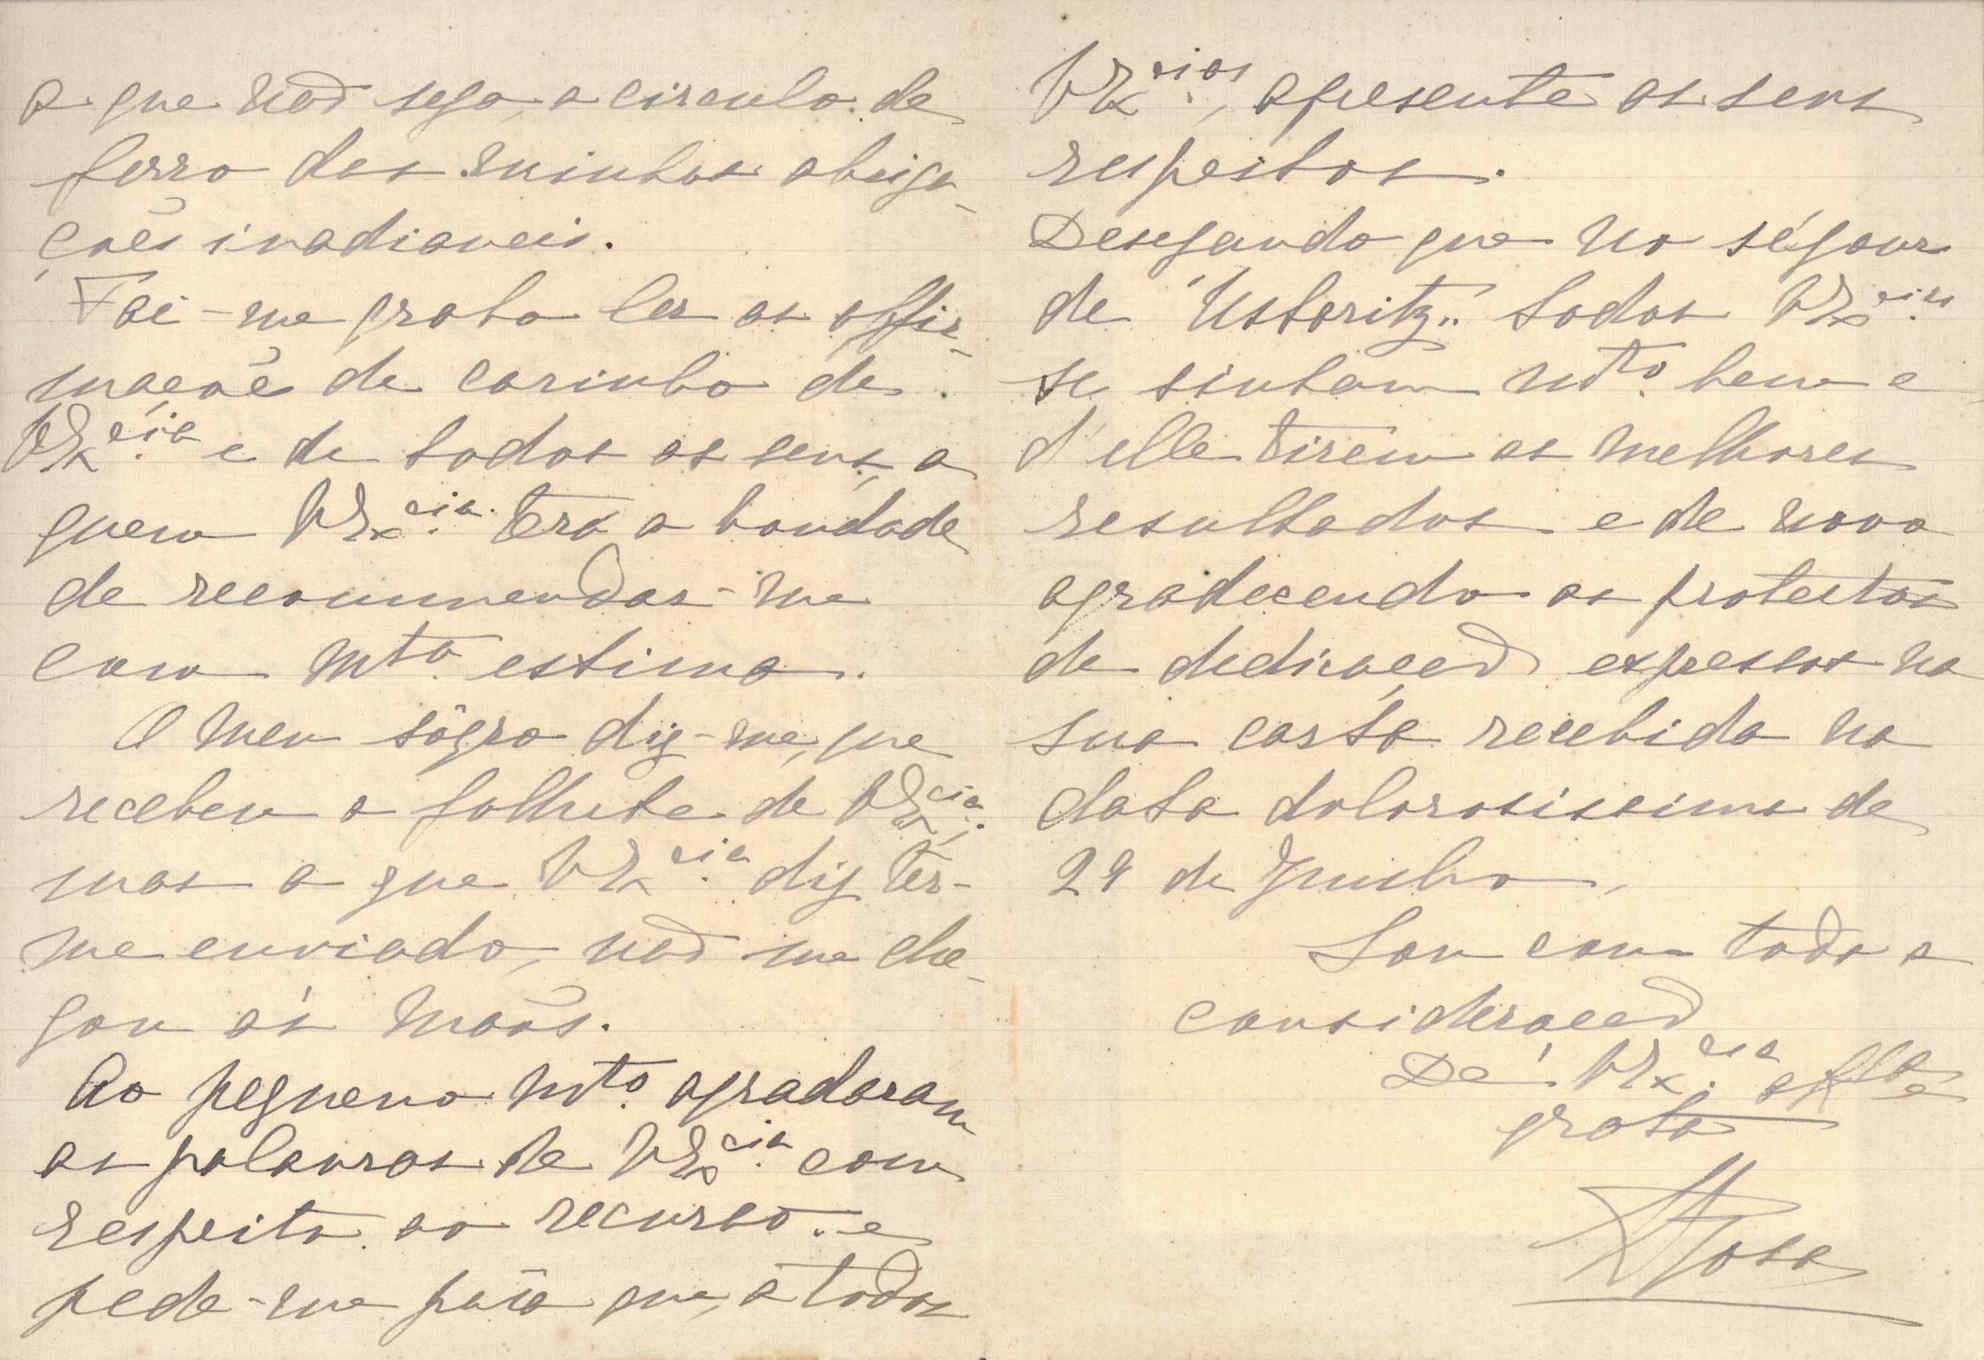 o que não seja, o circulo de
ferro das minhas obriga-
ções inadiaveis.
Foi-me grato ler as affir-
mações de carinho de
V Ex.cia e de todos os seus, a
quem V Ex.cia terá a bondade
de recommendar-me
com mta. estima.
O meu sôgro diz-me, que
recebeu o folheto de V Ex.cia,
mas o que V Ex.cia diz ter-
me enviado, não me che-
gou ás mãos.
Ao pequeno mto. agradaram
as palavras de V Ex.cia com
respeito ao recurso e
pede-me para que, a todos
V Ex.cias, apresente os seus
respeitos.
Desejando que no séjour
de "Ustaritz" todos V Ex.cias
se sintam mto. bem e
d'elle tirem os melhores
resultados e de novo
agradecendo os protestos
de dedicação expressos na
sua carta recebida na
data dolorosissima de
29 de Junho,
Sou com toda a
consideração
De V Ex.cia
grata
Rosa